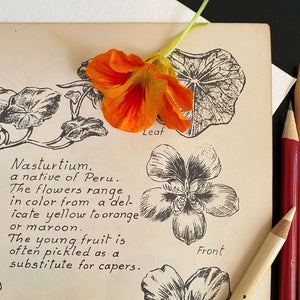 Leaf
Nasturtium,
a native of Peru.
The flowers range
in color from a del-
icate yellow to orange
or maroon.
The young fruit is
often pickled as a
substitute for capers.
Front